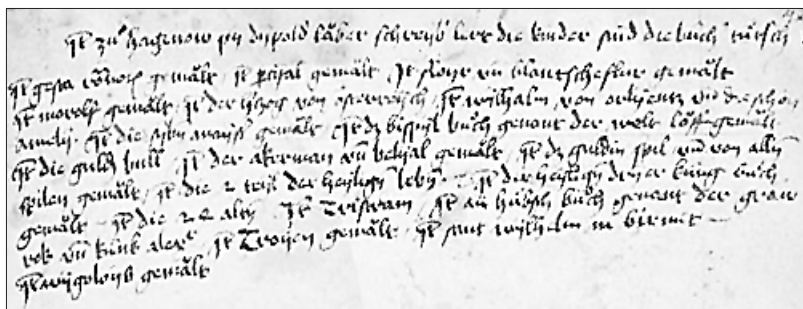 Jt zuͦ hagenow pÿ dÿpold läber schreyber lert die kinder sind die buͤcher tütsch
Jt gesta romanorum gemält · Jt parcifal gemält · Jt floyr vn blantscheflur gemält
Jt morolff gemält · Jt der hertzog von österrÿch · Jt wÿlhalm von orlyentz vnd die schön
amelÿ · Jt die sÿben maister gemält · Jt dz bispyl buͦch genant der welt löff gemält
Jt die guldin bull · Jt der akerman vn belyal gemält · Jt dz guldin spil vnd von allen
spilen gemält · Jt die 2 teil der heyligen leben · Jt der heyligen drÿer küng buͦch
gemält · Jt die 24 alten · Jt Tristram · Jt ain hübsch buͦch genant der graw
rok vn künk alexander · Jt Troyen gemält · Jt sant wÿlhelm in birmit
Jt wÿgoloyß gemält